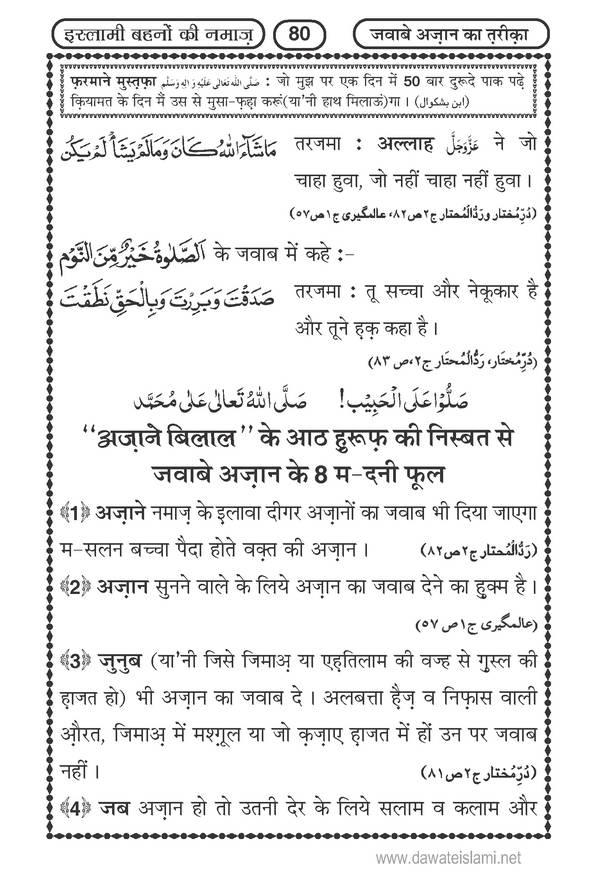 इस्लामी बहनों की नमाज़ 80 जवाबे अज़ान का त़रीक़ा
फ़रमाने मुस्तफ़ा صَلَّى اللهُ تَعَالٰى عَلَيْهِ وَاٰلِهٖ وَسَلَّم : जो मुझ पर एक दिन में 50 बार दुरूदे पाक पढ़े
क़ियामत के दिन मैं उस से मुसा-फ़हा करूं(या'नी हाथ मिलाऊं)गा । (ابن بشکوال)
مَا شَآءَ اللّٰهُ كَانَ وَمَا لَمْ يَشَأْ لَمْ يَكُن तरजमा : अल्लाह عَزَّوَجَلَّ ने जो
चाहा हुवा, जो नहीं चाहा नहीं हुवा ।
(دُرِّمُختار ورَدُّالْمُحتار ج٢ص٨٢، عالمگیری ج١ص٥٧)
اَلصَّلٰوةُ خَيْرٌ مِّنَ النَّوْم के जवाब में कहे :-
صَدَقْتَ وَبَرِرْتَ وَبِالْحَقِّ نَطَقْتَ तरजमा : तू सच्चा और नेकूकार है
और तूने ह़क़ कहा है ।
(دُرِّمُختار، رَدُّالْمُحتار ج٢، ص ٨٣)
صَلُّوْا عَلَى الْحَبِيْب! صَلَّى اللهُ تَعَالٰى عَلٰى مُحَمَّد
“अज़ाने बिलाल” के आठ हुरूफ़ की निस्बत से
जवाबे अज़ान के 8 म-दनी फूल
﴾1﴿ अज़ाने नमाज़ के इलावा दीगर अज़ानों का जवाब भी दिया जाएगा
म-सलन बच्चा पैदा होते वक़्त की अज़ान । (رَدُّالْمُحتار ج٢ص٨٢)
﴾2﴿ अज़ान सुनने वाले के लिये अज़ान का जवाब देने का हुक्म है ।
(عالمگیری ج١ص ٥٧)
﴾3﴿ जुनुब (या'नी जिसे जिमाअ़ या एह़तिलाम की वज्ह से ग़ुस्ल की
ह़ाजत हो) भी अज़ान का जवाब दे । अलबत्ता ह़ैज़ व निफ़ास वाली
औ़रत, जिमाअ़ में मश्ग़ूल या जो क़ज़ाए ह़ाजत में हों उन पर जवाब
नहीं । (دُرِّمُختار ج٢ص٨١)
﴾4﴿ जब अज़ान हो तो उतनी देर के लिये सलाम व कलाम और
www.dawateislami.net